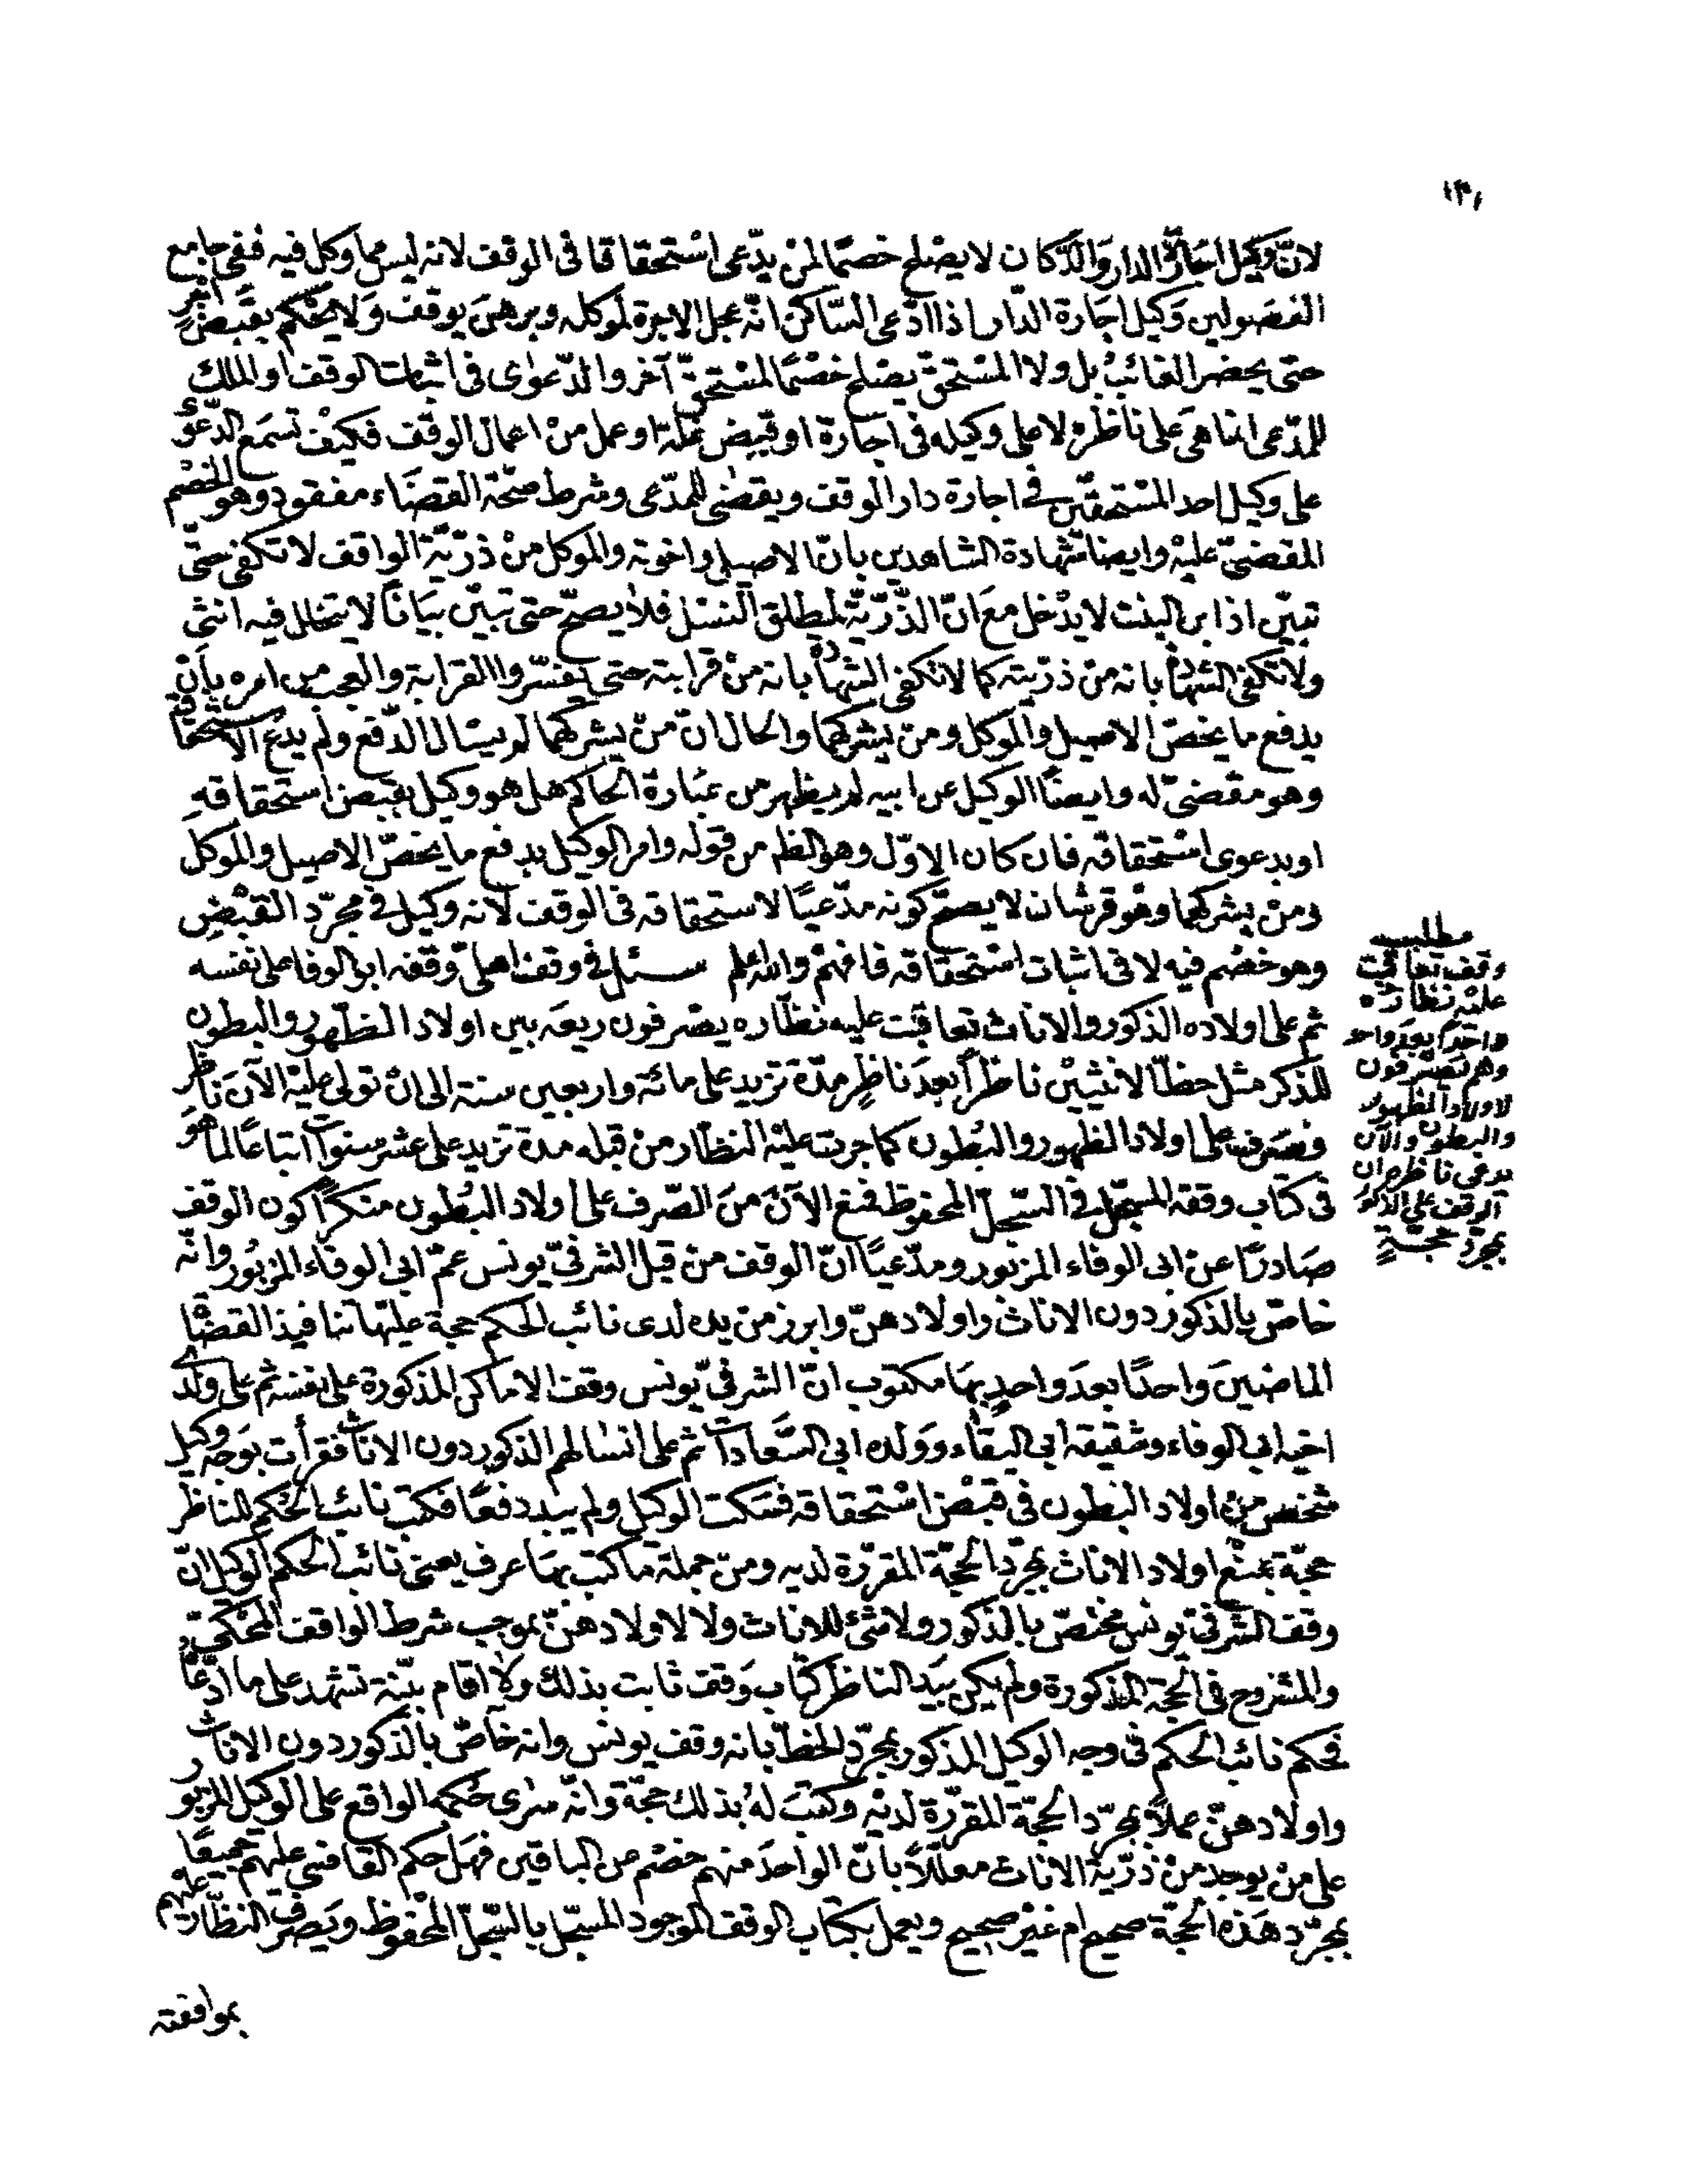 ١٣١
لانّ وكيل اجارة الدار والدّكان لا يصلح خصمًا لمن يدّعى استحقاقا فى الوقف لانه ليس مما وكل فيه ففى جامع
الفصولين وكيل اجارة الدار اذا ادّعى السّاكن انّه عجل الاجرة لموكله وبرهن يوقف ولا يحكم بقبض اجر
حتى يحضر الغائب بل ولا المستحق يصلح خصمًا لمستحق آخر والدّعوى فى اثبات الوقف او الملك
للمدّعى انما هى على ناظره لا على وكيله فى اجارة او قبض غلة او عمل من اعمال الوقف فكيف تسمع الدّعوى
على وكيل احد المستحقّين فى اجارة دار الوقف ويقضى للمدّعى وشرط صحّة القضاء مفقود وهو الخصم
المقضىّ عليه وايضا شهادة الشاهدين بانّ الاصيل واخوته والموكل من ذرّيّة الواقف لا تكفى حتّى
تبيّن اذ ابن البنت لا يدخل مع انّ الذّرّيّة لمطلق النسل فلا يصحّ حتى تبيّن بيانًا لا يتخلل فيه انثى
ولا تكفى الشهادة بانه من ذرّيته كما لا تكفى الشهادة بانه من قرابته حتى يفسّروا القرابة والعجب من امره بان
يدفع ما يخصّ الاصيل والموكل ومن يشركهما والحال انّ من يشركهما لم يسال الدّفع ولم يدع الاستحقاق
وهو مقضىّ له وايضًا الوكيل عن ابيه لم يظهر من عبارة الحاكم هل هو وكيل بقبض استحقاقه
او بدعوى استحقاقه فان كان الاوّل وهو الظم من قوله وامر الوكيل بدفع ما يخصّ الاصيل والموكل
ومن يشركهما وهو قرشان لا يصحّ كونه مدّعيًا لاستحقاقه فى الوقف لانه وكيل فى مجرّد القبض
وهو خصم فيه لا فى اثبات استحقاقه فافهم والله اعلم سئل فى وقف اهلىّ وقفه ابو الوفا على نفسه
ثم على اولاده الذكور والاناث تعاقبت عليه نظّاره يصرفون ريعه بين اولاد الظهور والبطون
للذكر مثل حظّ الانثيين ناظرًا بعد ناظر مدّة تزيد على مائة واربعين سنة الى ان تولى عليه الآن ناظر
فصرف على اولاد الظهور والبطون كما جرت عليه النظّار من قبله مدة تزيد على عشر سنوات اتباعًا لما هو
فى كتاب وقفه المسجّل فى السّجلّ المحفوظ فمنع الآن من الصّرف على اولاد البطون منكرًا كون الوقف
صادرًا عن ابى الوفاء المزبور ومدّعيًا انّ الوقف من قبل الشرفىّ يونس عمّ ابى الوفاء المزبور وانّه
خاصّ بالذكور دون الاناث واولادهنّ وابرز من يده لدى نائب الحكم حجة عليها تنافيذ القضاة
الماضين واحدًا بعد واحد بها مكتوب انّ الشرفىّ يونس وقف الاماكن المذكورة على نفسه ثم على ولدى
اخيه ابى الوفاء وشقيقه ابى البقاء وولده ابى السّعادات ثم على انسالهم الذكور دون الاناث فقرأت بوجه وكيل
شخص من اولاد البطون فى قبض استحقاقه فسكت الوكيل ولم يبد دفعًا فكتب نائب الحكم للناظر
حجّة بمنع اولاد الاناث بمجرّد الحجّة المقرّرة لديه ومن جملة ما كتب بها عرف يعنى نائب الحكم الوكيل انّ
وقف الشرفىّ يونس مختصّ بالذكور ولا شئ للاناث ولا لاولادهنّ بموجب شرط الواقف المحكىّ
والمشروح فى الحجّة المذكورة ولم يكن بيد الناظر كتاب وقف ثابت بذلك ولا اقام بيّنة تشهد على ما ادّعاه
فحكم نائب الحكم فى وجه الوكيل المذكور بمجرّد الخطّ بانه وقف يونس وانه خاصّ بالذكور دون الاناث
واولادهنّ عملاً بمجرّد الحجّة المقرّرة لديه وكتب له بذلك حجّة وانّه سرى حكمه الواقع على الوكيل المزبور
على من يوجد من ذرّية الاناث معلّلاً بانّ الواحد منهم خصم عن الباقين فهل حكم القاضى عليهم جميعًا
بمجرّد هذه الحجّة صحيح ام غير صحيح ويعمل بكتاب الوقف الموجود المسجّل بالسّجلّ المحفوظ ويصرف النظّار عليهم
بموافقته
مطلب
وقف تعاقبت
عليه نظاره
واحدًا بعد واحد
وهم يصرفون
لاولاد الظهور
والبطون والآن
يدعى ناظره ان
الوقف على الذكور
بمجرّد حجّة